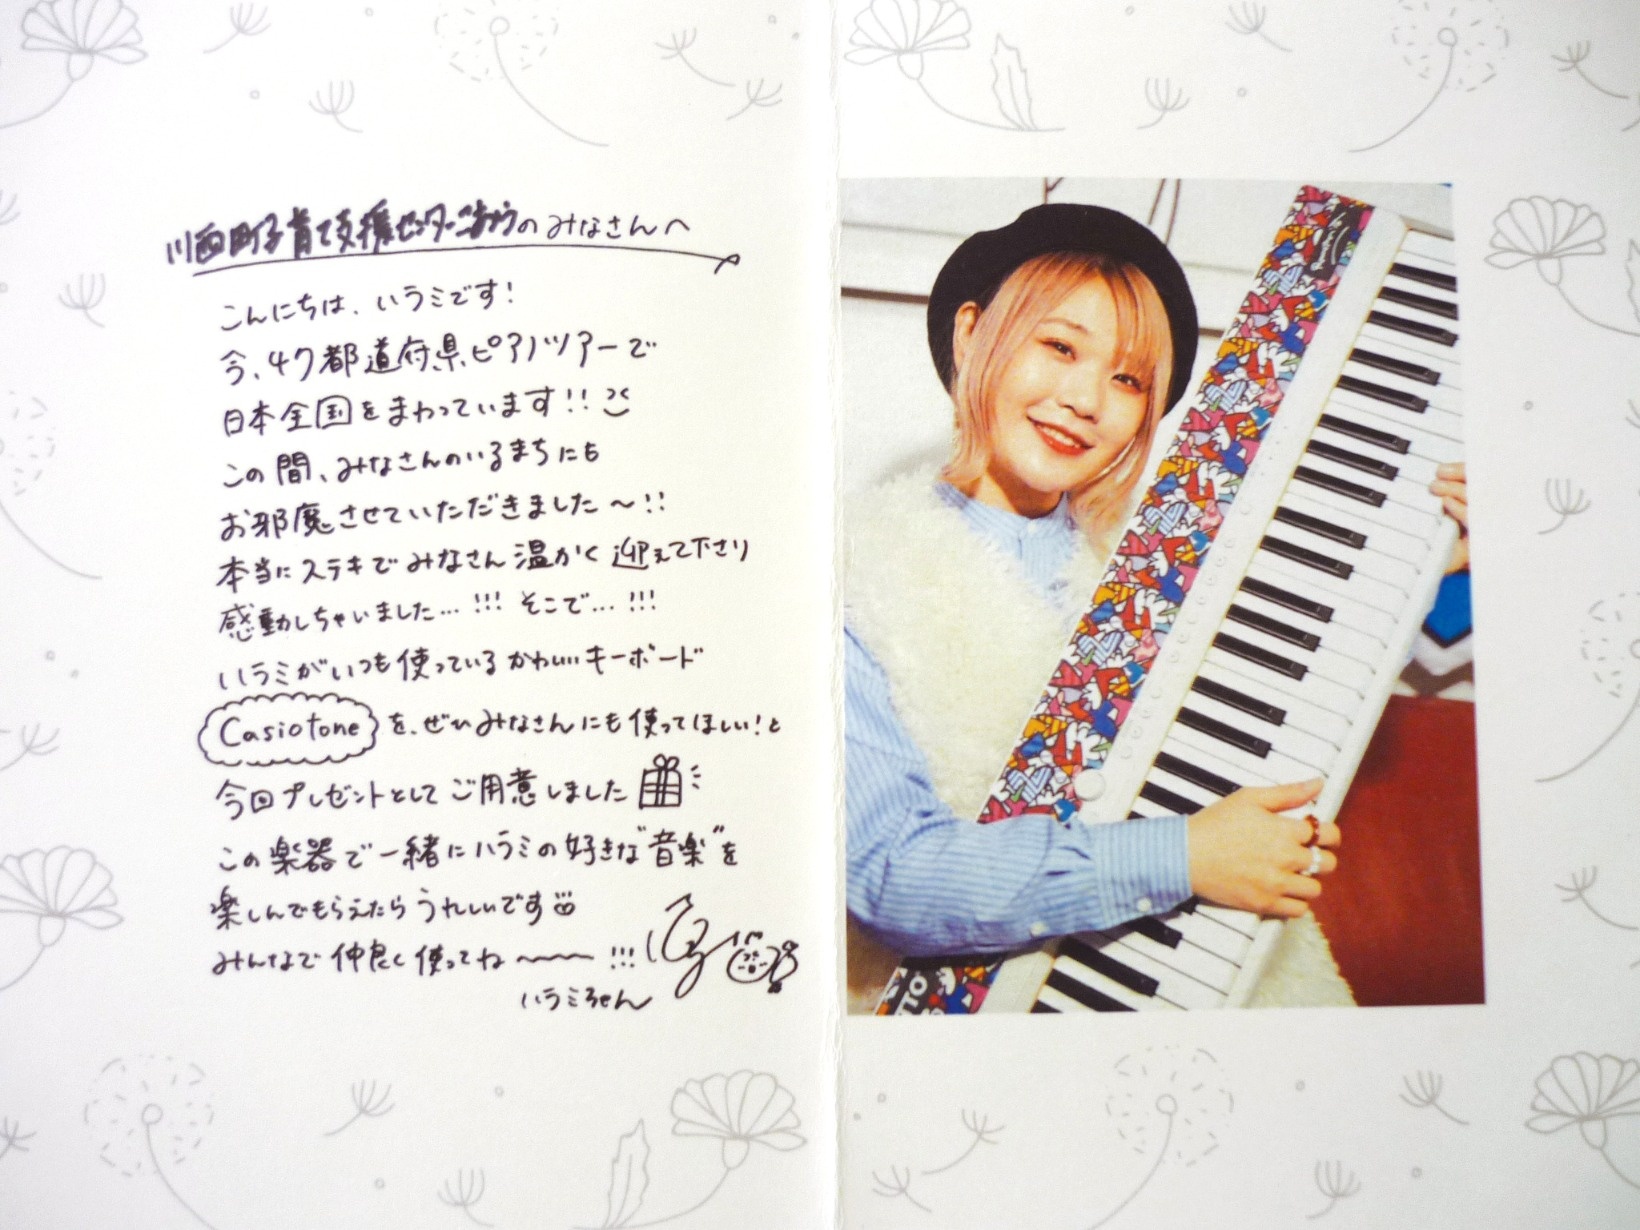 川西町子育て支援センターこまつのみなさんへ
こんにちは、ハラミです!
今、47都道府県ピアノツアーで
日本全国をまわっています!!
この間、みなさんのいるまちにも
お邪魔させていただきました〜!!
本当にステキでみなさん温かく迎えて下さり
感動しちゃいました…!!! そこで…!!!
ハラミがいつも使っているかわいいキーボード
Casiotoneを、ぜひみなさんにも使ってほしい!と
今回プレゼントとしてご用意しました
この楽器で一緒にハラミの好きな"音楽"を
楽しんでもらえたらうれしいです
みんなで仲良く使ってね〜〜〜!!!